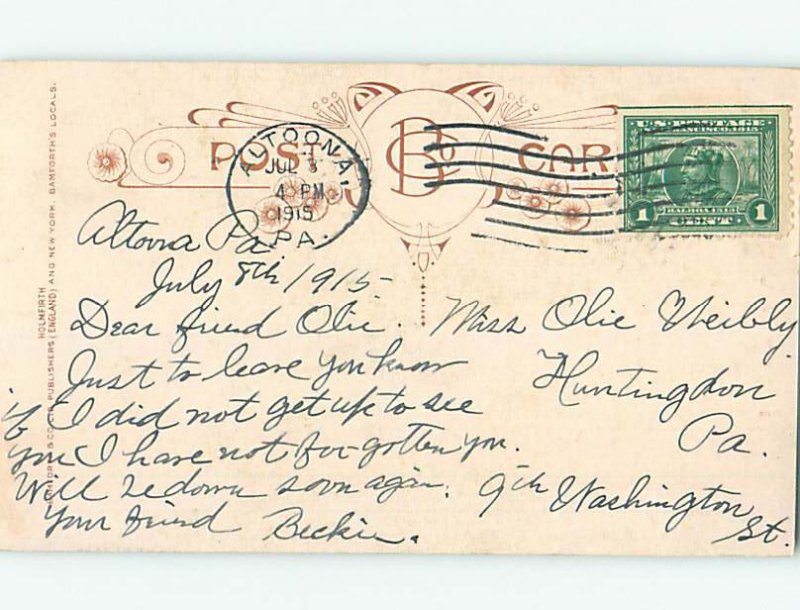 POST CARD
BCo
ALTOONA,
JUL 8
4 PM
1915
PA.
U.S. POSTAGE
SAN FRANCISCO 1915
1 BALBOA 1513 1
CENT
Altoona Pa
July 8th 1915
Dear friend Olie.
Just to leave you know
if I did not get up to see
you I have not for-gotten you.
Will be down soon again.
Your friend Beckie.
Miss Olie Weibly
Huntingdon
Pa.
9th Washington
St.
HOLMFIRTH
PUBLISHERS (ENGLAND) AND NEW YORK. BAMFORTH'S LOCALS.